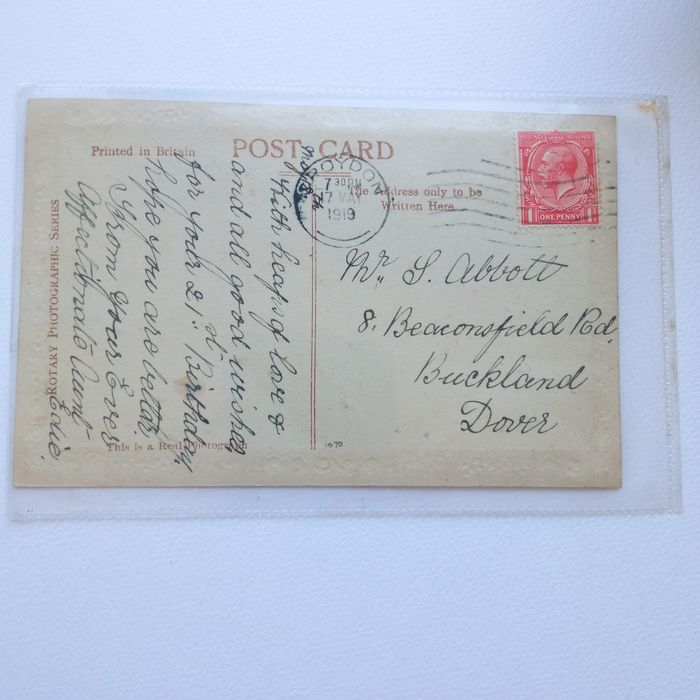 Printed in Britain
POST CARD
CROYDON
7 30 PM
17 MAY
1919
The Address only to be
Written Here.
POSTAGE REVENUE
1 ONE PENNY 1
With heaps of love &
and all good wishes
for your 21st Birthday,
hope you are better.
From your Ever
Affectionate Aunt
Edie.
Mr. S. Abbott
8. Beaconsfield Rd,
Buckland
Dover
ROTARY PHOTOGRAPHIC SERIES
This is a Real Photograph